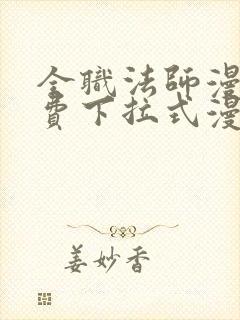 全職法師漫
費下拉式漫
姜妙香